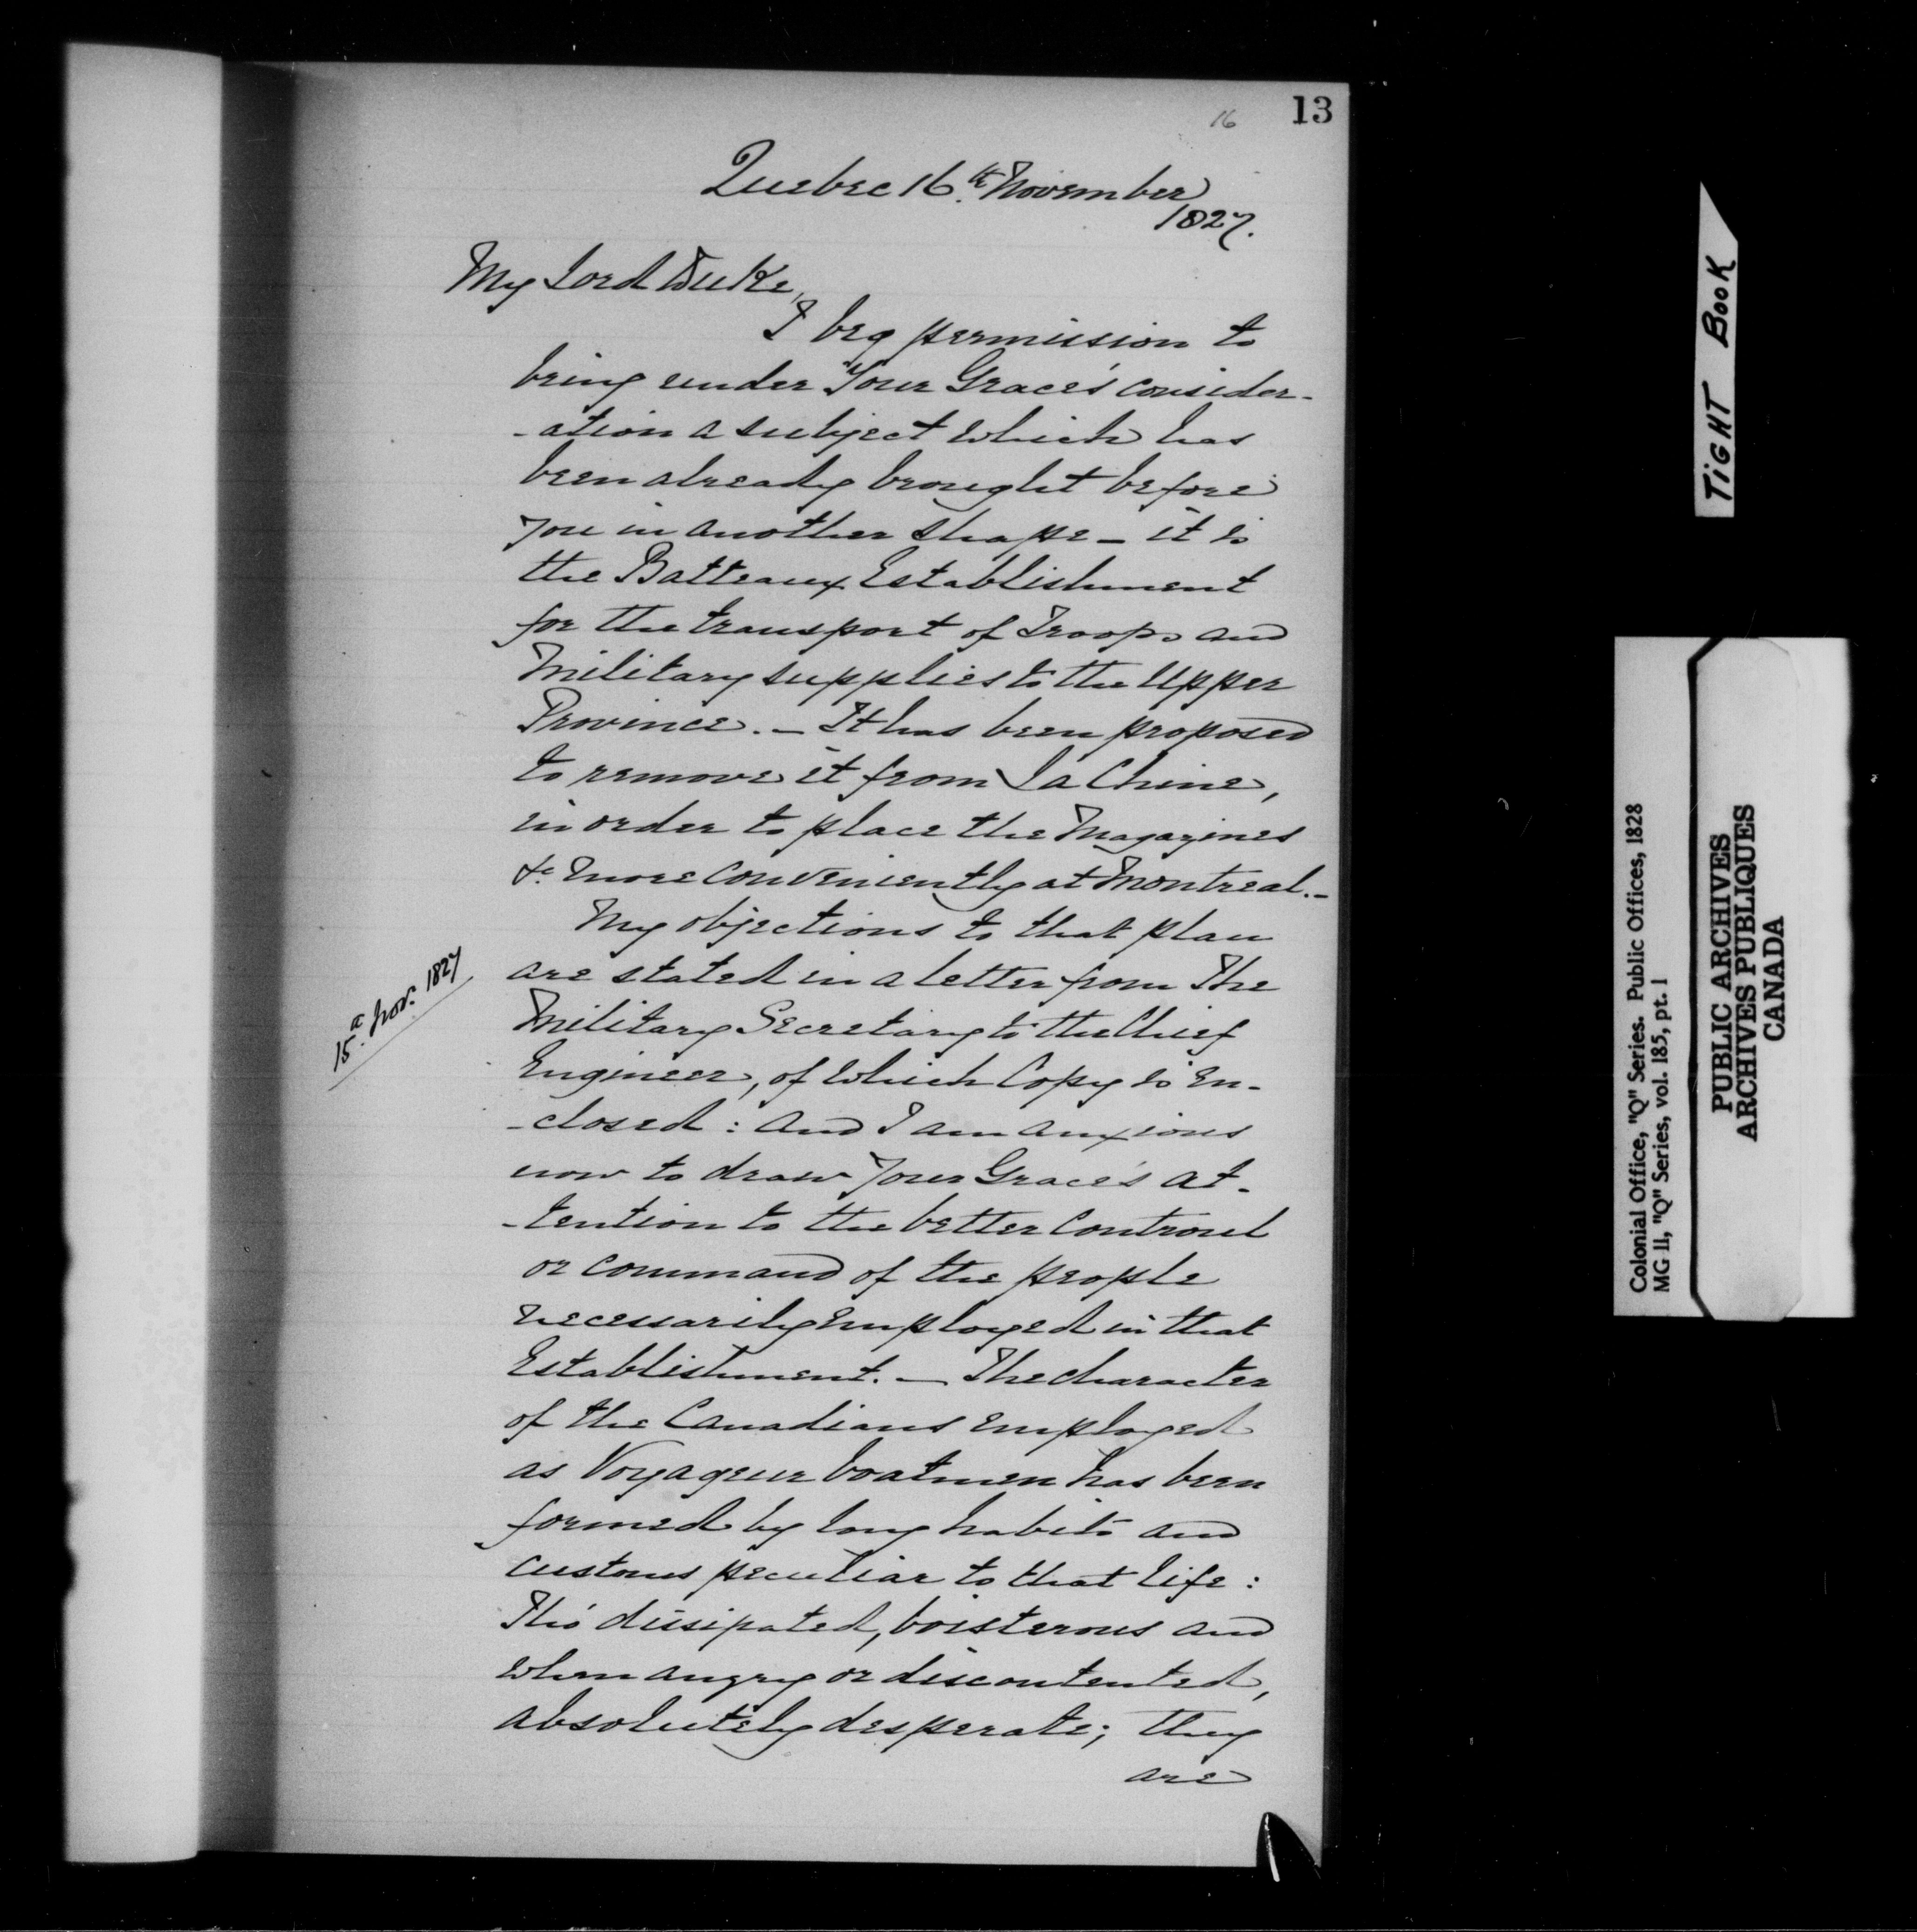 16 13
Quebec 16th. November
1827.
My Lord Duke,
I beg permission to
bring under Your Grace's consider-
-ation a subject which has
been already brought before
you in another shape - it is
the Batteaux Establishment
for the transport of Troops and
Military supplies to the Upper
Province. - It has been proposed
to remove it from La Chine,
in order to place the Magazines
&c. more conveniently at Montreal. -
My objections to that plan
are stated in a letter from The
15th. Nov. 1827
Military Secretary to the Chief
Engineer, of which Copy is En-
-closed : and I am anxious
now to draw Your Grace's at-
-tention to the better controul
or command of the people
necessarily employed in that
Establishment. - The character
of the Canadians employed
as Voyageur boatmen has been
formed by long habits and
customs peculiar to that life :
Tho' dissipated, boisterous and
when angry or discontented,
absolutely desperate; they
are
TIGHT BOOK
Colonial Office, "Q" Series. Public Offices, 1828
MG 11, "Q" Series, vol. 185, pt. 1
PUBLIC ARCHIVES
ARCHIVES PUBLIQUES
CANADA